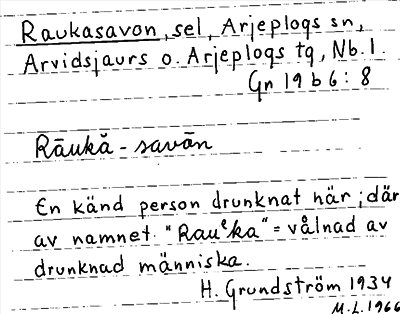 Raukasavon, sel, Arjeplogs sn,
Arvidsjaurs o. Arjeplogs tg, Nb. l.
Gn 19 b 6 : 8
Rāukă - savān
En känd person drunknat här ; där
av namnet. "Rauᵉka" = vålnad av
drunknad människa.
H. Grundström 1934
M.L. 1966